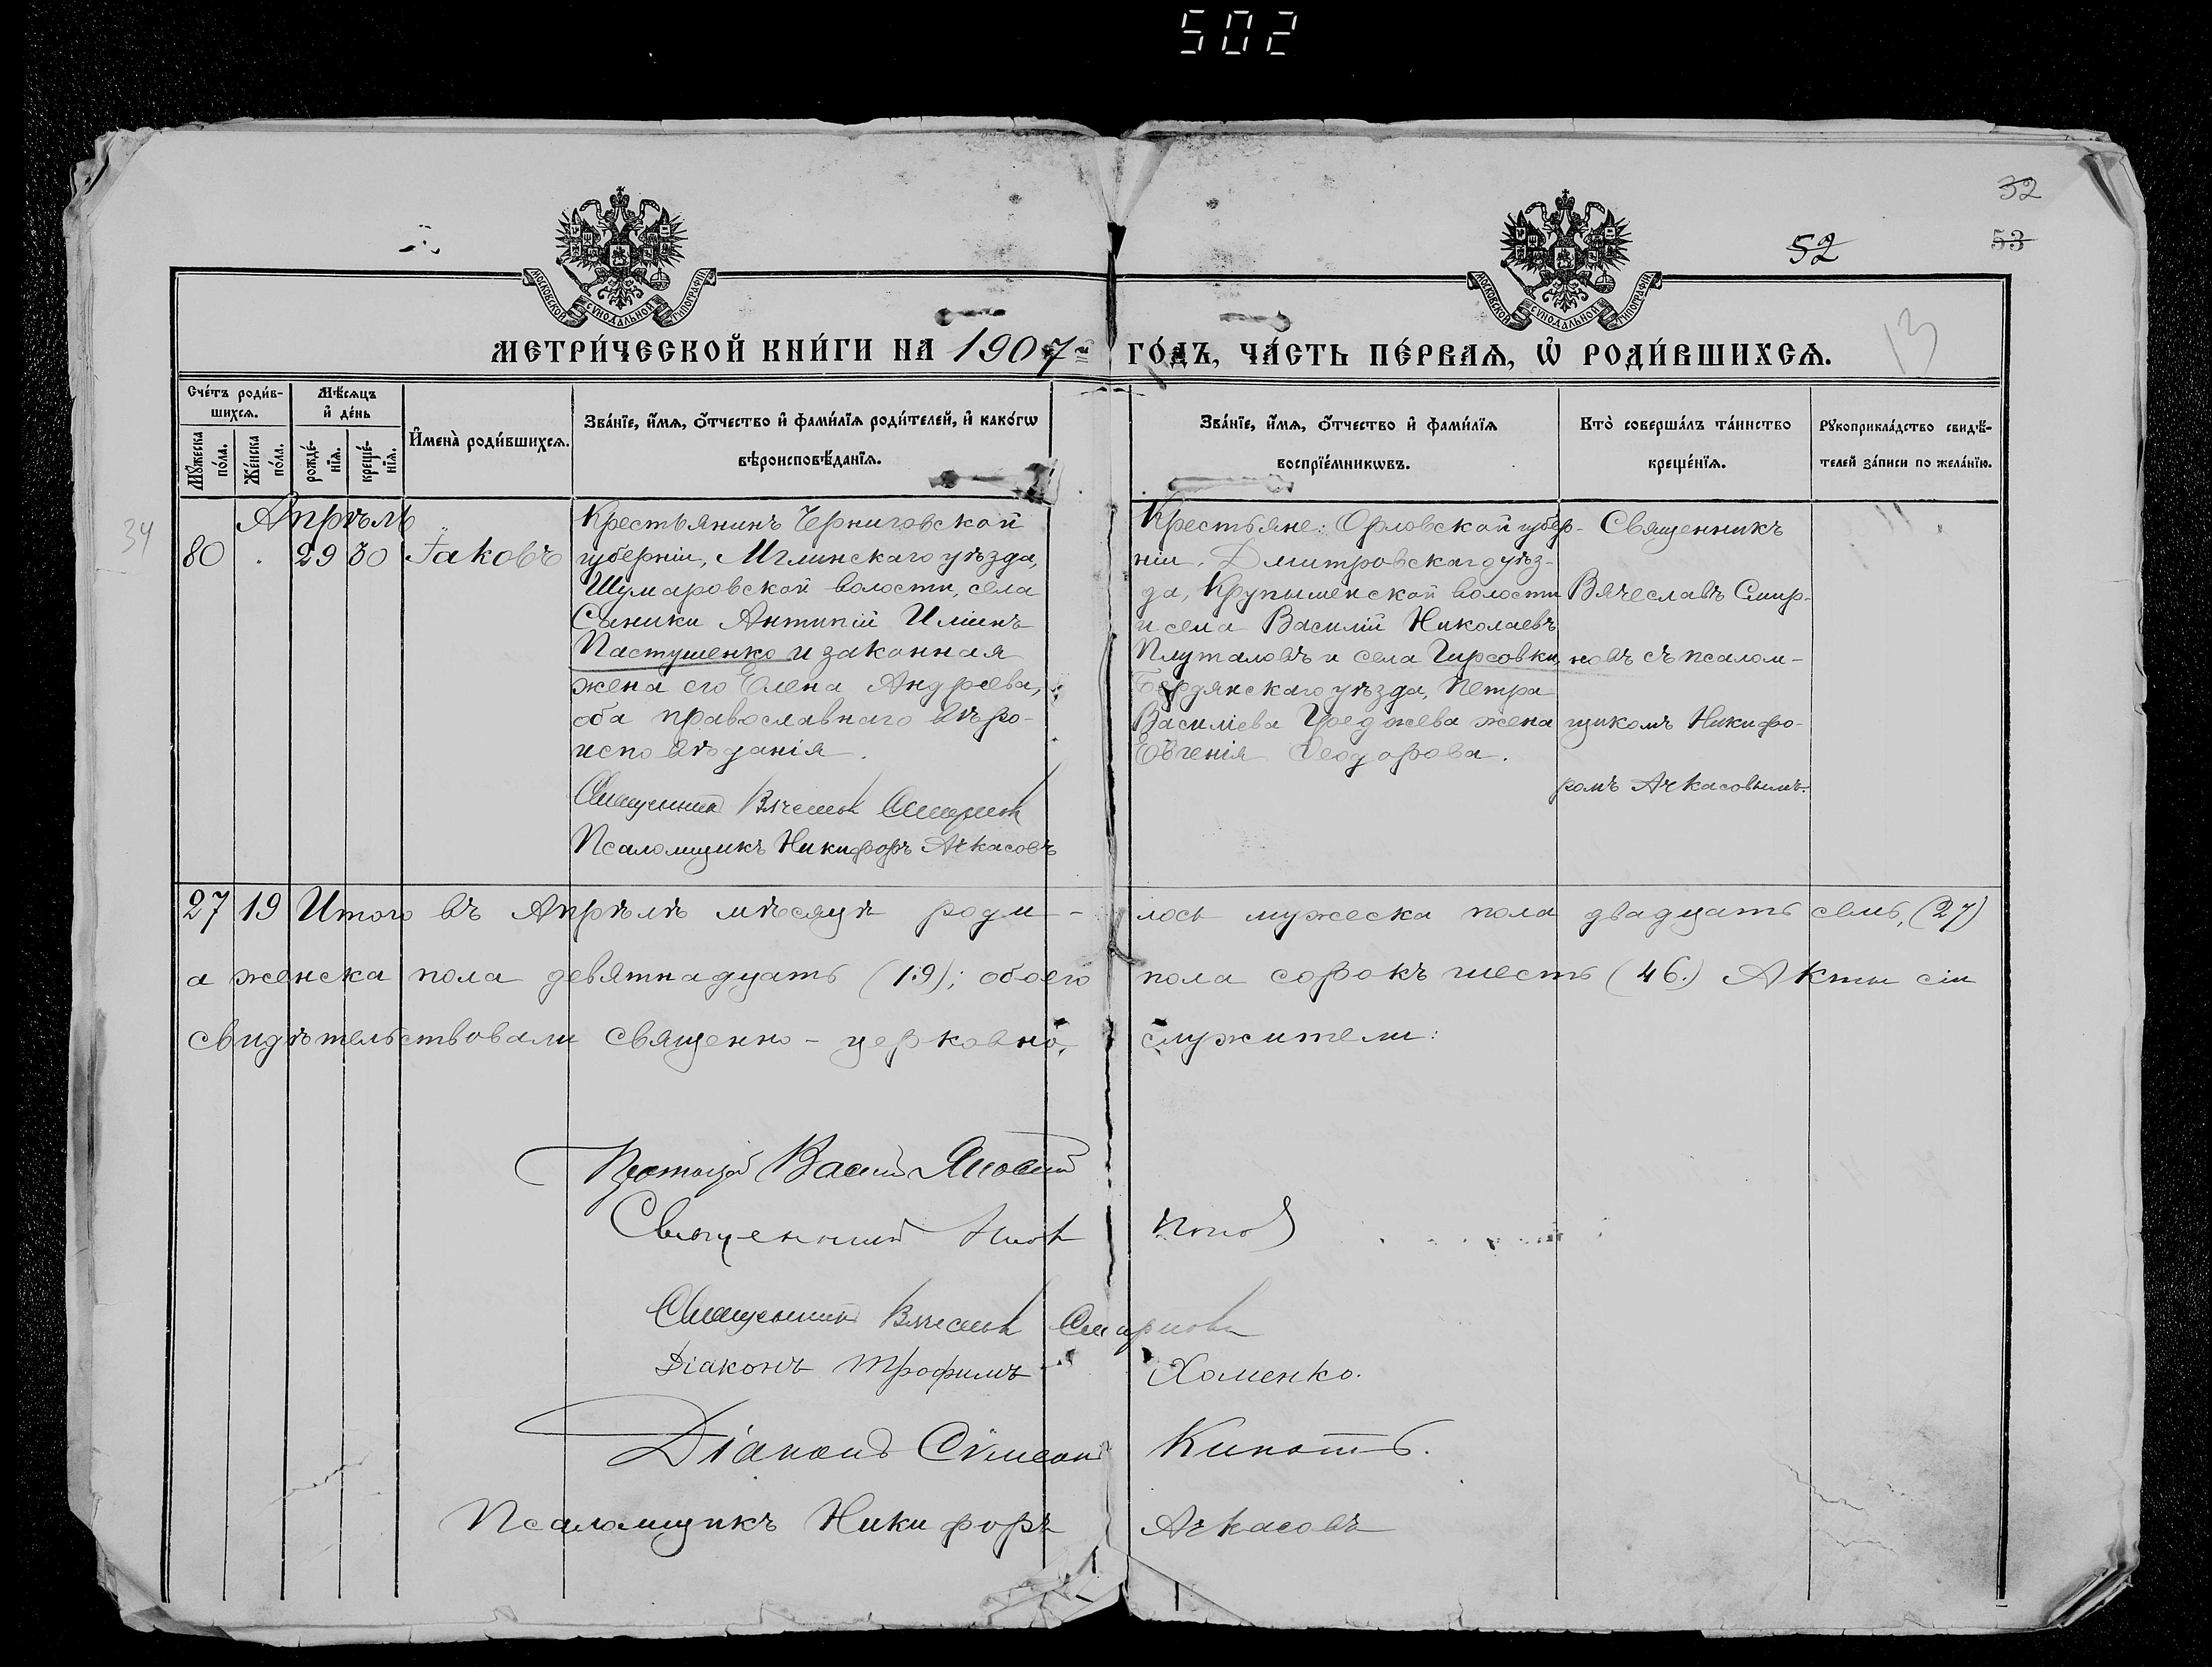 502
32
52
53
13
МОСКОВСКОЙ СѴНОДАЛЬНОЙ ТИПОГРАФІИ
МОСКОВСКОЙ СѴНОДАЛЬНОЙ ТИПОГРАФІИ
МЕТРИ́ЧЕСКОЙ КНИ́ГИ НА 1907й ГО́ДЪ, ЧА́СТЬ ПЕ́РВАѦ, Ѡ҆ РОДИ́ВШИХСѦ.
Сче́тъ роди́в-
шихсѧ.
Мꙋ́жеска
по́ла.
Же́нска
по́ла.
Мѣ́сѧцъ
и҆ де́нь
рожде́-
нїѧ.
креще́-
нїѧ.
И҆мена̀ роди́вшихсѧ.
Зва́нїе, и҆́мѧ, ѻ҆́тчество и҆ фами́лїѧ роди́телей, и҆ како́гѡ
вѣроисповѣ́данїѧ.
Зва́нїе, и҆́мѧ, ѻ҆́тчество и҆ фами́лїѧ
воспрїе́мникѡвъ.
Кто̀ соверша́лъ та́инство
креще́нїѧ.
Рꙋкоприкла́дство свидѣ́-
телей за́писи по жела́нїю.
34
Апрѣль
80 29 30 Іаковъ
Крестьянинъ Черниговской
губерніи, Мглинскаго уѣзда,
Шумаровской волости, села
Синики Антипій Ильинъ
Пастушенко и законная
жена его Елена Андреева,
оба православнаго вѣро-
исповѣданія.
Священникъ Вячеславъ Смирновъ
Псаломщикъ Никифоръ Ачкасовъ
Крестьяне: Орловской губер-
ніи, Дмитровскаго уѣз-
да, Крупышенской волости
и села Василій Николаевъ
Плуталовъ и села Гирсовки,
Бердянскаго уѣзда, Петра
Василіева жена
Евгенія Ѳеодорова.
Священникъ
Вячеславъ Смир-
новъ съ псалом-
щикомъ Никифо-
ромъ Ачкасовымъ.
27 19 Итого въ Апрѣлѣ мѣсяцѣ роди- лось мужеска пола двадцать семь, (27)
а женска пола девятнадцать (19); обоего пола сорокъ шесть (46.) Акты сіи
свидѣтельствовали священно-церковно- служители:
Протоіерей Василій
Священникъ Попов
Священникъ Вячеславъ Смирновъ
Діаконъ Трофимъ Хоменко.
Діаконъ Сѵмеонъ
Псаломщикъ Никифоръ Ачкасовъ